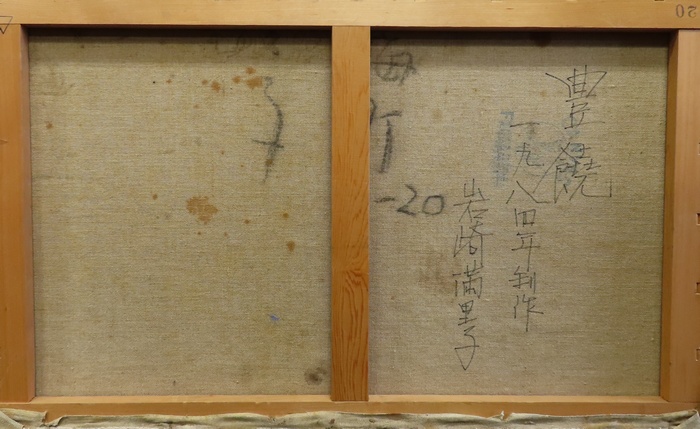 豊饒
一九八四年制作
岩崎満里子
-20
20